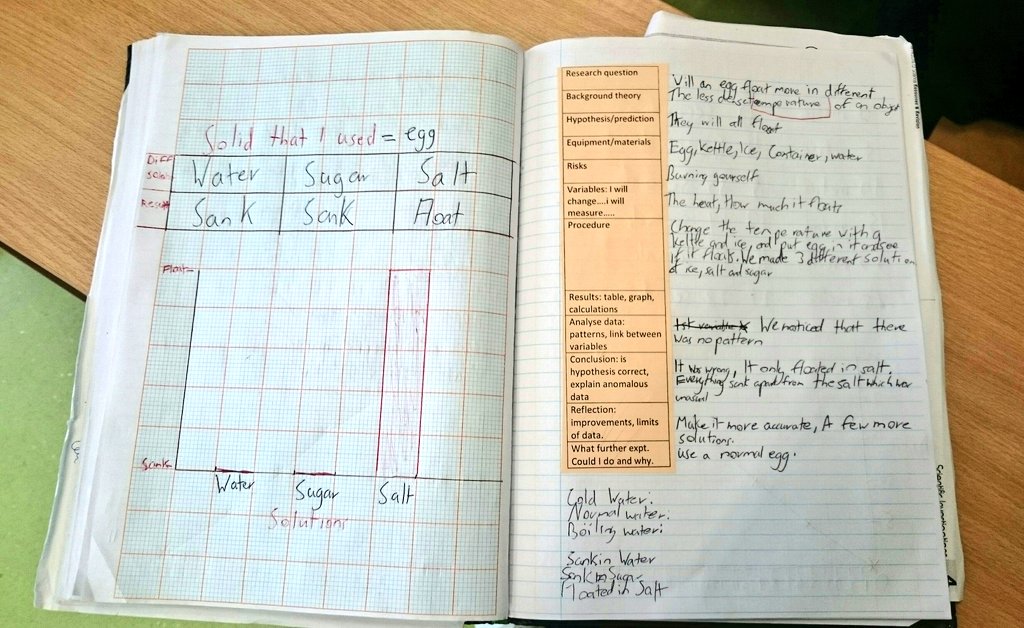 Solid that I used = egg
Water Sugar Salt
Sank Sank Float
Float
Sank
Water Sugar Salt
Solutions
Research question
Will an egg float more in different
Background theory
The less dense temperature of an object
Hypothesis/prediction
They will all float
Equipment/materials
Egg, Kettle, Ice, Container, water
Risks
Burning yourself
Variables: I will
change....i will
measure.....
The heat, How much it floats
Procedure
Change the temperature with a
kettle and ice, and put egg in it and see
if it floats. We made 3 different solution
of ice, salt and sugar
Results: table, graph,
calculations
Analyse data:
patterns, link between
variables
We noticed that there
was no pattern
Conclusion: is
hypothesis correct,
explain anomalous
data
It was wrong, It only floated in salt.
Everything sank apart from the salt which was
unusual
Reflection:
improvements, limits
of data.
Make it more accurate, A few more
solutions.
What further expt.
Could I do and why.
use a normal egg.
Cold Water:
Normal water:
Boiling water:
Sank in Water
Sank in Sugar
Floated in Salt